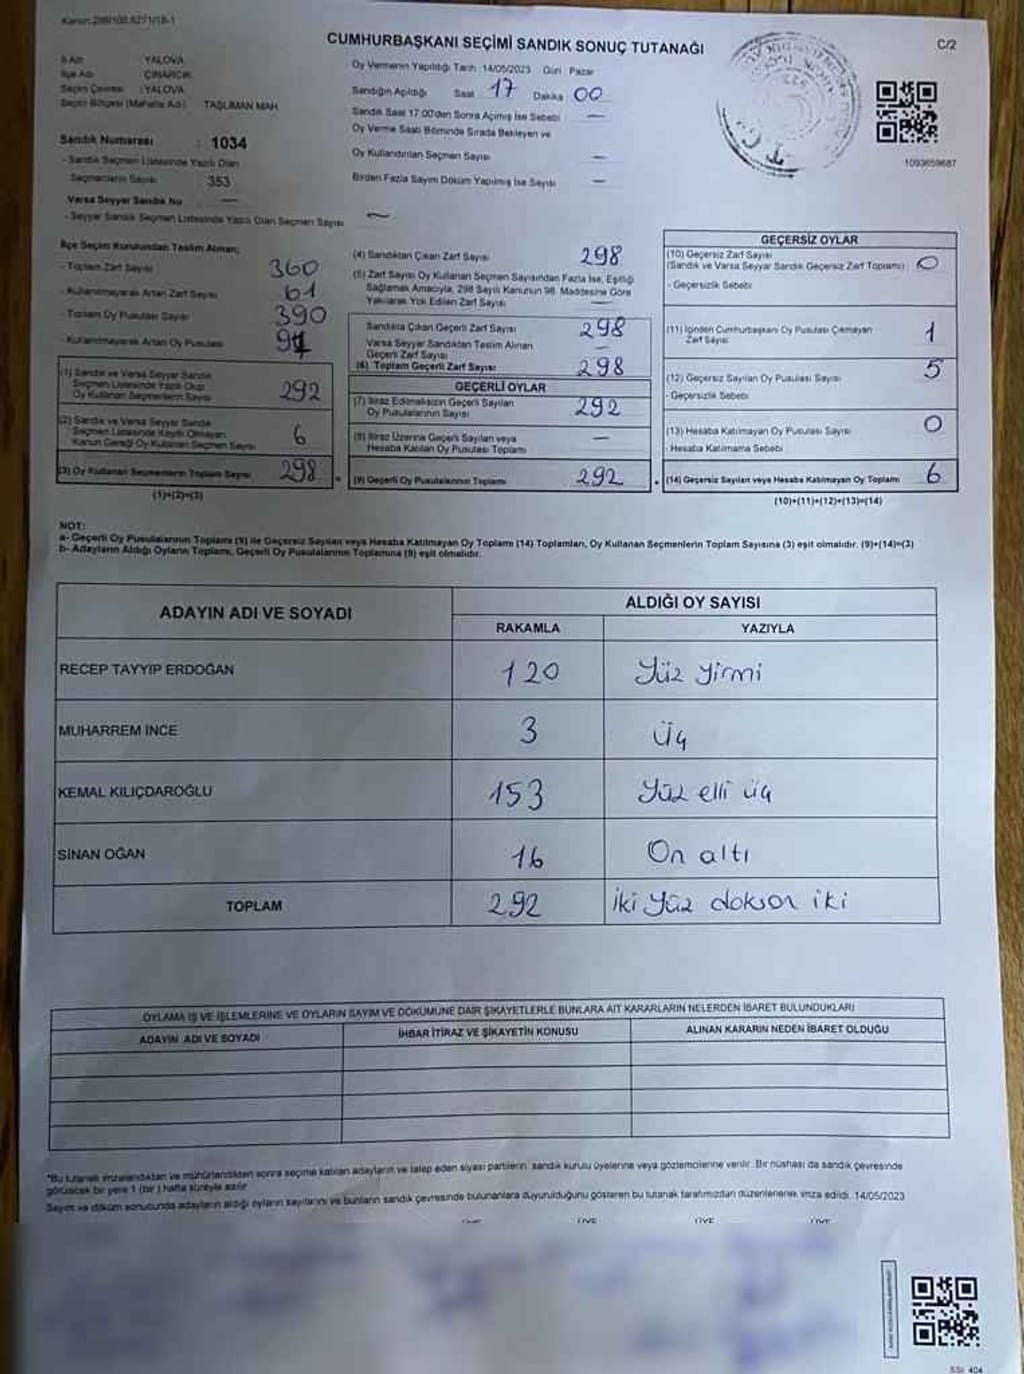 Kanun:298/100,6271/18-1
C/2
CUMHURBAŞKANI SEÇİMİ SANDIK SONUÇ TUTANAĞI
İl Adı : YALOVA
İlçe Adı : ÇINARCIK
Seçim Çevresi : YALOVA
Seçim Bölgesi (Mahalle Adı) : TAŞLIMAN MAH.
Sandık Numarası : 1034
- Sandık Seçmen Listesinde Yazılı Olan
Seçmenlerin Sayısı 353
Varsa Seyyar Sandık No —
- Seyyar Sandık Seçmen Listesinde Yazılı Olan Seçmen Sayısı —
Oy Vermenin Yapıldığı Tarih : 14/05/2023 Gün : Pazar
Sandığın Açıldığı Saat 17 Dakika 00
Sandık Saat 17:00'den Sonra Açılmış İse Sebebi —
Oy Verme Saati Bitiminde Sırada Bekleyen ve
Oy Kullandırılan Seçmen Sayısı —
Birden Fazla Sayım Döküm Yapılmış İse Sayısı —
1093659687
İlçe Seçim Kurulundan Teslim Alınan;
- Toplam Zarf Sayısı 360
- Kullanılmayarak Artan Zarf Sayısı 61
- Toplam Oy Pusulası Sayısı 390
- Kullanılmayarak Artan Oy Pusulası
(1) Sandık ve Varsa Seyyar Sandık
Seçmen Listesinde Yazılı Olup
Oy Kullanan Seçmenlerin Sayısı 292
(2) Sandık ve Varsa Seyyar Sandık
Seçmen Listesinde Kayıtlı Olmayan
Kanun Gereği Oy Kullanan Seçmen Sayısı 6
(3) Oy Kullanan Seçmenlerin Toplam Sayısı 298
(1)+(2)=(3)
(4) Sandıktan Çıkan Zarf Sayısı 298
(5) Zarf Sayısı Oy Kullanan Seçmen Sayısından Fazla İse, Eşitliği
Sağlamak Amacıyla, 298 Sayılı Kanunun 98. Maddesine Göre
Yakılarak Yok Edilen Zarf Sayısı —
Sandıkta Çıkan Geçerli Zarf Sayısı 298
Varsa Seyyar Sandıktan Teslim Alınan
Geçerli Zarf Sayısı —
(6) Toplam Geçerli Zarf Sayısı 298
GEÇERLİ OYLAR
(7) İtiraz Edilmeksizin Geçerli Sayılan
Oy Pusulalarının Sayısı 292
(8) İtiraz Üzerine Geçerli Sayılan veya
Hesaba Katılan Oy Pusulası Toplamı —
(9) Geçerli Oy Pusulalarının Toplamı 292
GEÇERSİZ OYLAR
(10) Geçersiz Zarf Sayısı
(Sandık ve Varsa Seyyar Sandık Geçersiz Zarf Toplamı) 0
- Geçersizlik Sebebi
(11) İçinden Cumhurbaşkanı Oy Pusulası Çıkmayan
Zarf Sayısı 1
(12) Geçersiz Sayılan Oy Pusulası Sayısı 5
- Geçersizlik Sebebi
(13) Hesaba Katılmayan Oy Pusulası Sayısı 0
- Hesaba Katılmama Sebebi
(14) Geçersiz Sayılan veya Hesaba Katılmayan Oy Toplamı 6
(10)+(11)+(12)+(13)=(14)
NOT:
a- Geçerli Oy Pusulalarının Toplamı (9) ile Geçersiz Sayılan veya Hesaba Katılmayan Oy Toplamı (14) Toplamları, Oy Kullanan Seçmenlerin Toplam Sayısına (3) eşit olmalıdır. (9)+(14)=(3)
b- Adayların Aldığı Oyların Toplamı, Geçerli Oy Pusulalarının Toplamına (9) eşit olmalıdır.
ADAYIN ADI VE SOYADI
ALDIĞI OY SAYISI
RAKAMLA YAZIYLA
RECEP TAYYIP ERDOĞAN 120 Yüz yirmi
MUHARREM İNCE 3 Üç
KEMAL KILIÇDAROĞLU 153 Yüz elli üç
SİNAN OĞAN 16 On altı
TOPLAM 292 İki Yüz doksan iki
OYLAMA İŞ VE İŞLEMLERİNE VE OYLARIN SAYIM VE DÖKÜMÜNE DAİR ŞİKAYETLERLE BUNLARA AİT KARARLARIN NELERDEN İBARET BULUNDUKLARI
ADAYIN ADI VE SOYADI İHBAR İTİRAZ VE ŞİKAYETİN KONUSU ALINAN KARARIN NEDEN İBARET OLDUĞU
*Bu tutanak imzalandıktan ve mühürlendikten sonra seçime katılan adayların ve talep eden siyasi partilerin sandık kurulu üyelerine veya gözlemcilerine verilir. Bir nüshası da sandık çevresinde
görülecek bir yere 1 (bir) hafta süreyle asılır.
Sayım ve döküm sonucunda adayların aldığı oyların sayılarını ve bunların sandık çevresinde bulunanlara duyurulduğunu gösteren bu tutanak tarafımızdan düzenlenerek imza edildi. 14/05/2023
ÜYE ÜYE ÜYE ÜYE